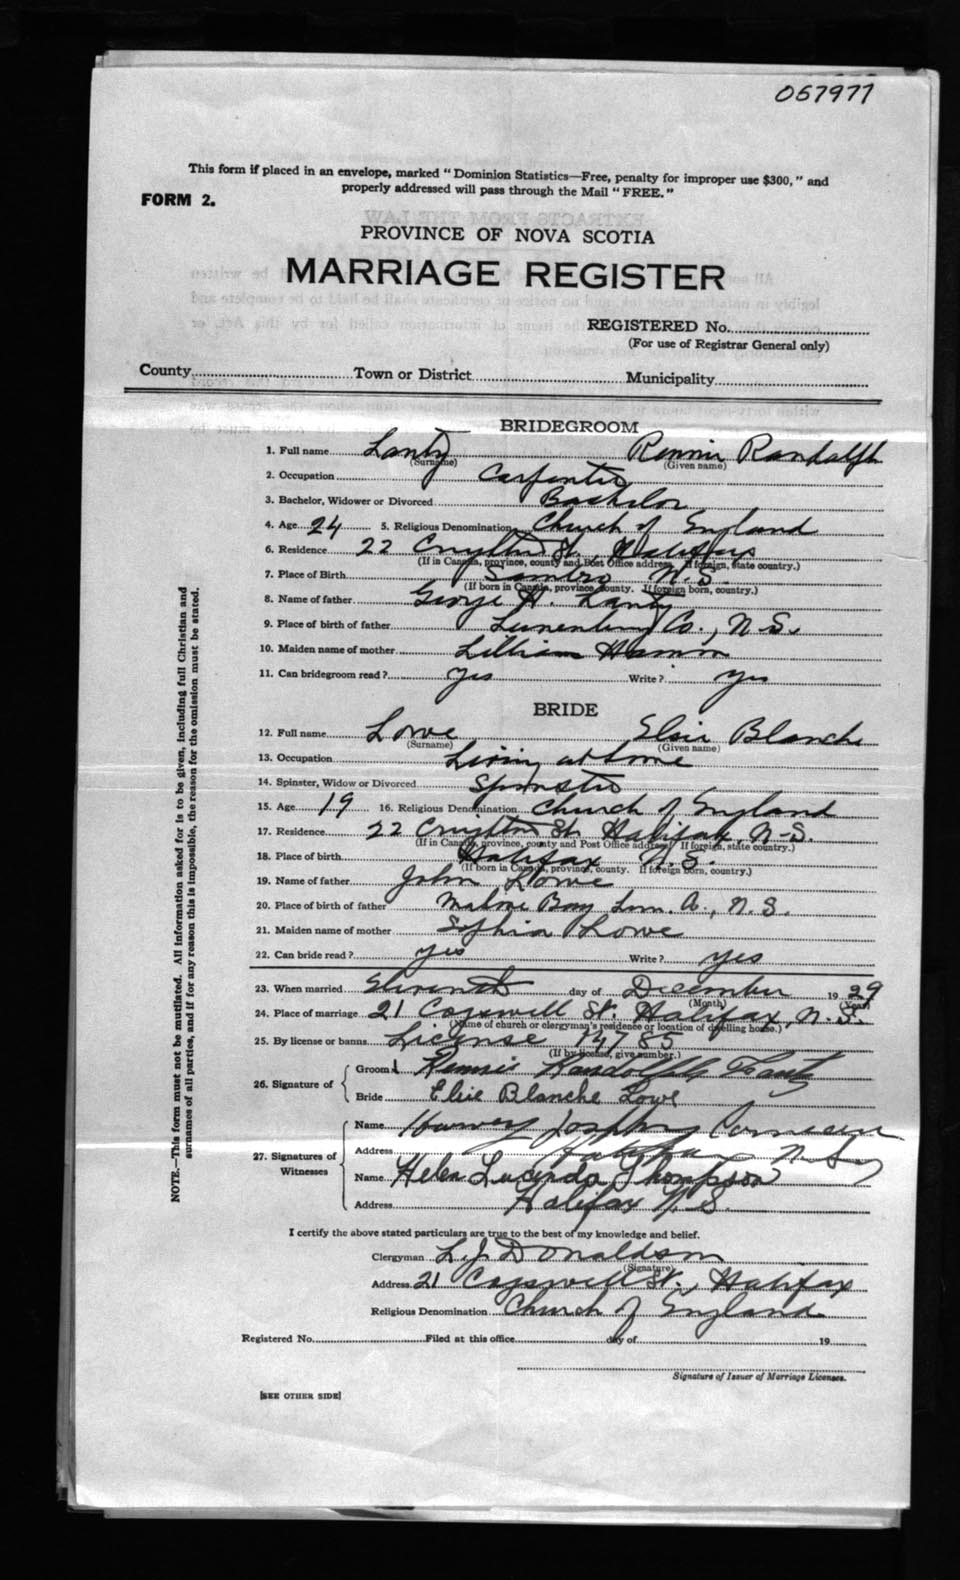 057977
This form if placed in an envelope, marked "Dominion Statistics—Free, penalty for improper use $300," and
properly addressed will pass through the Mail "FREE."
FORM 2.
PROVINCE OF NOVA SCOTIA
MARRIAGE REGISTER
REGISTERED No.
(For use of Registrar General only)
County Town or District Municipality
BRIDEGROOM
1. Full name Lantz Rennie Randolph
(Surname) (Given name)
2. Occupation Carpenter
3. Bachelor, Widower or Divorced Bachelor
4. Age 24 5. Religious Denomination Church of England
6. Residence 22 Creighton St., Halifax
(If in Canada, province, county and Post Office address. If foreign, state country.)
7. Place of Birth Sambro N.S.
(If born in Canada, province, county. If foreign born, country.)
8. Name of father George H. Lantz
9. Place of birth of father Lunenburg Co., N.S.
10. Maiden name of mother Lillian
11. Can bridegroom read? yes Write? yes
BRIDE
12. Full name Lowe Elsie Blanche
(Surname) (Given name)
13. Occupation Living at home
14. Spinster, Widow or Divorced Spinster
15. Age 19 16. Religious Denomination Church of England
17. Residence 22 Creighton St. Halifax, N.S.
(If in Canada, province, county and Post Office address. If foreign, state country.)
18. Place of birth Halifax N.S.
(If born in Canada, province, county. If foreign born, country.)
19. Name of father John Lowe
20. Place of birth of father Mahone Bay Lun. Co., N.S.
21. Maiden name of mother Sophia Lowe
22. Can bride read? yes Write? yes
23. When married Eleventh day of December 1929
(Month) (Year)
24. Place of marriage 21 Cogswell St. Halifax, N.S.
(Name of church or clergyman's residence or location of dwelling home.)
25. By license or banns License
(If by license, give number.)
26. Signature of
Groom Rennie Randolph Lantz
Bride Elsie Blanche Lowe
27. Signatures of Witnesses
Name Harvey
Address Halifax N.S.
Name Helen Lucinda Thompson
Address Halifax N.S.
I certify the above stated particulars are true to the best of my knowledge and belief.
Clergyman L.J. Donaldson
(Signature)
Address 21 Cogswell St., Halifax
Religious Denomination Church of England
Registered No. Filed at this office day of 19
Signature of Issuer of Marriage Licenses.
[SEE OTHER SIDE]
NOTE.—This form must not be mutilated. All information asked for is to be given, including full Christian and
surnames of all parties, and if for any reason this is impossible, the reason for the omission must be stated.